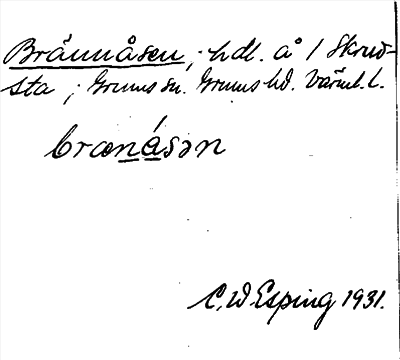 Brännåsen, hdl. å 1 Skruv-
sta; Grums sn. Grums hd. Värml. l.
brænåsən
C. W Esping 1931.